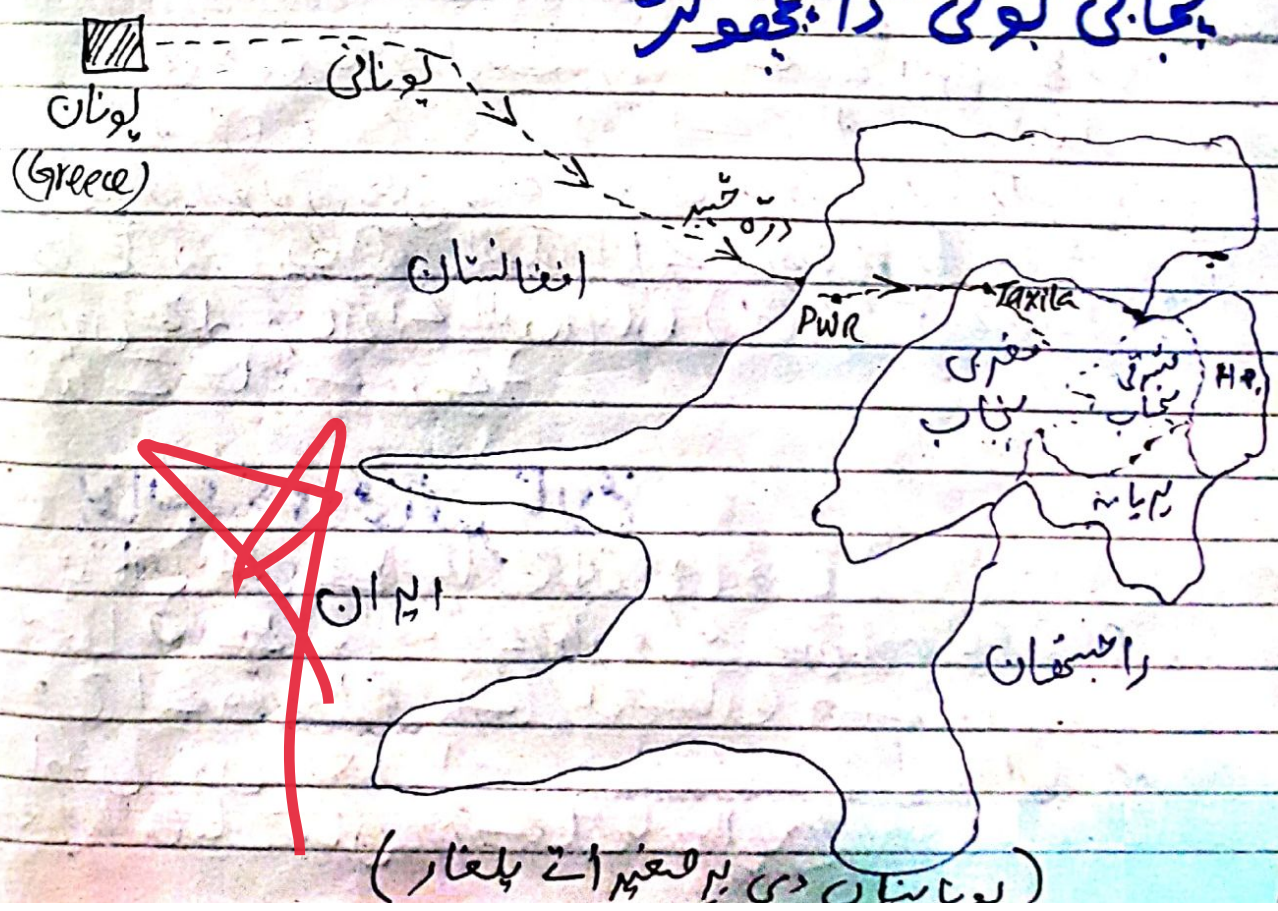 پنجابی بولی دا پچھوکڑ
یونانی
یونان
(Greece)
درّہ خیبر
افغانستان
PWR
Taxila
مغربی
پنجاب
مشرقی
پنجاب
H.P.
ہریانہ
ایران
راجستھان
(یونانیاں دی برصغیر اتے یلغار)